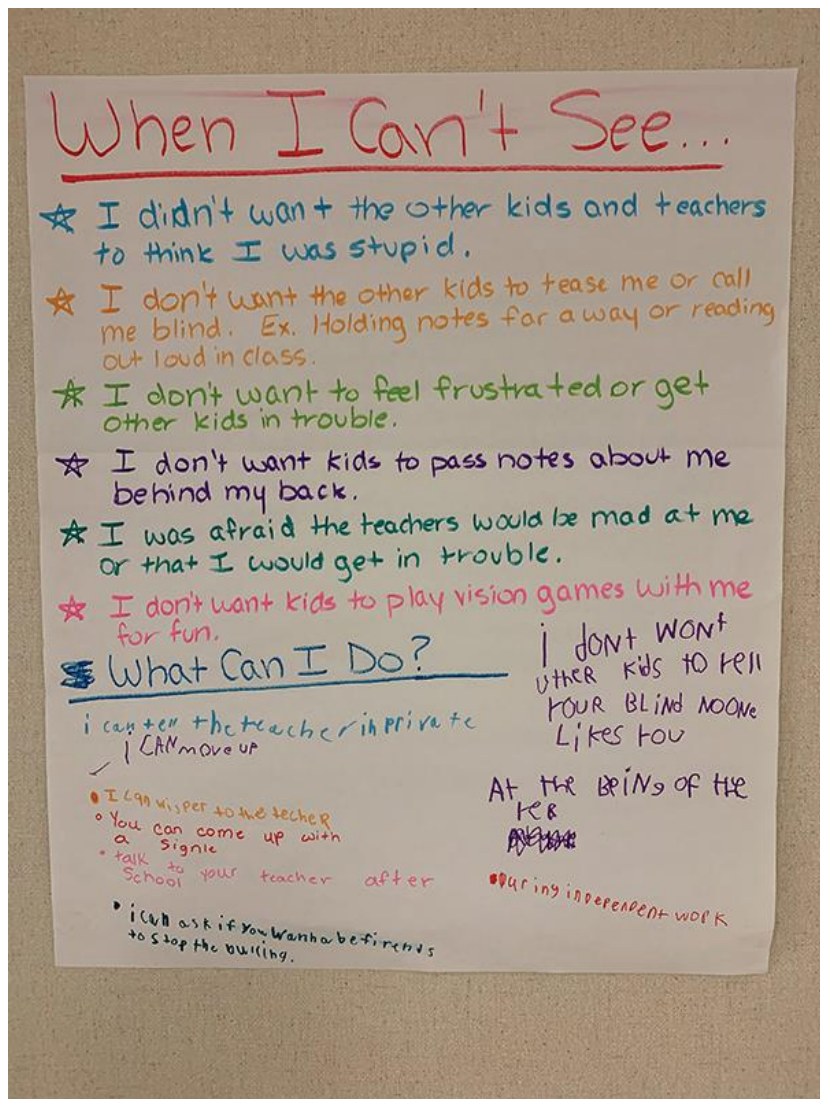 When I Can't See...
☆ I didn't want the other kids and teachers
to think I was stupid.
☆ I don't want the other kids to tease me or call
me blind. Ex. Holding notes far away or reading
out loud in class.
☆ I don't want to feel frustrated or get
other kids in trouble.
☆ I don't want kids to pass notes about me
behind my back.
☆ I was afraid the teachers would be mad at me
or that I would get in trouble.
☆ I don't want kids to play vision games with me
for fun.
What Can I Do?
i can tell the teacher in private
I CAN move up
• I can wisper to the techer
• You can come up with
a signle
• talk to
School your teacher after
• i can ask if you wanna be firends
to stop the bulling.
i DONT WONT
UTHER KidS tO tell
YOUR BLiND NOONe
LiKes YOU
At the BeiNg OF the
YeR
• During independent work